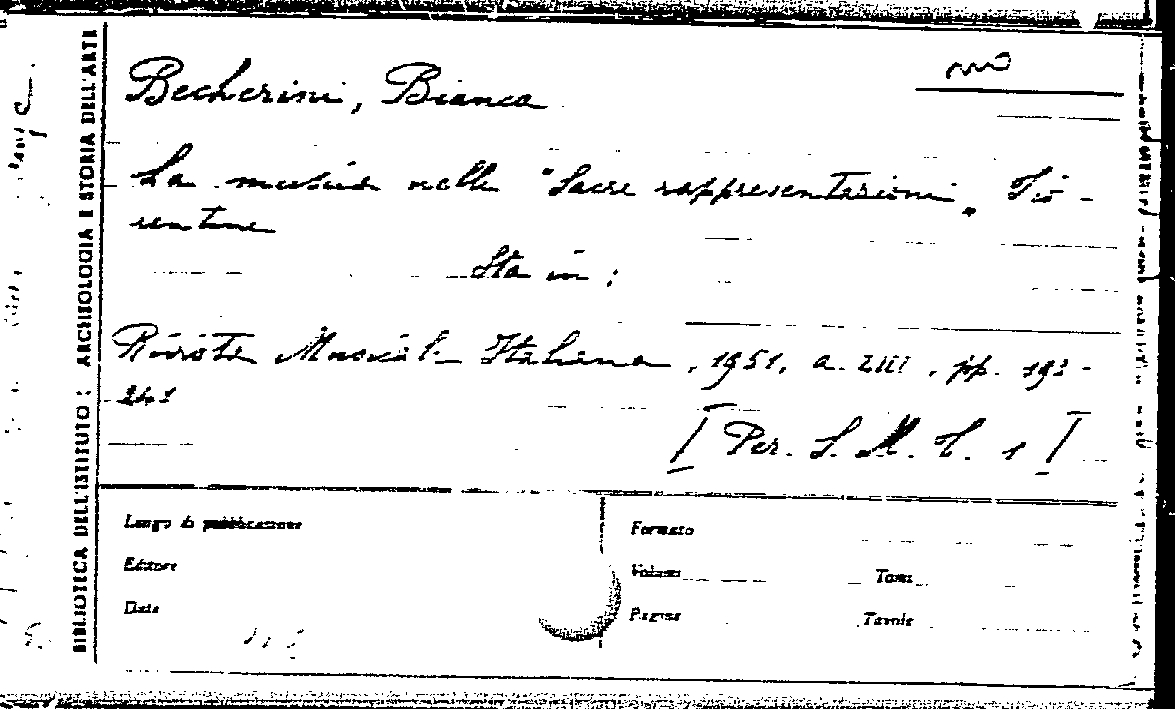 BIBLIOTECA DELL'ISTITUTO: ARCHEOLOGIA E STORIA DELL'ARTE
Becherini, Bianca
La musica nelle "Sacre rappresentazioni" Fio-
rentine
Sta in:
Rivista Musicale Italiana, 1951, a. LIII, pp. 193-
241
[Per. S. M. C. 1]
Luogo di pubblicazione
Editore
Data
Formato
Volumi
Tomi
Pagine
Tavole